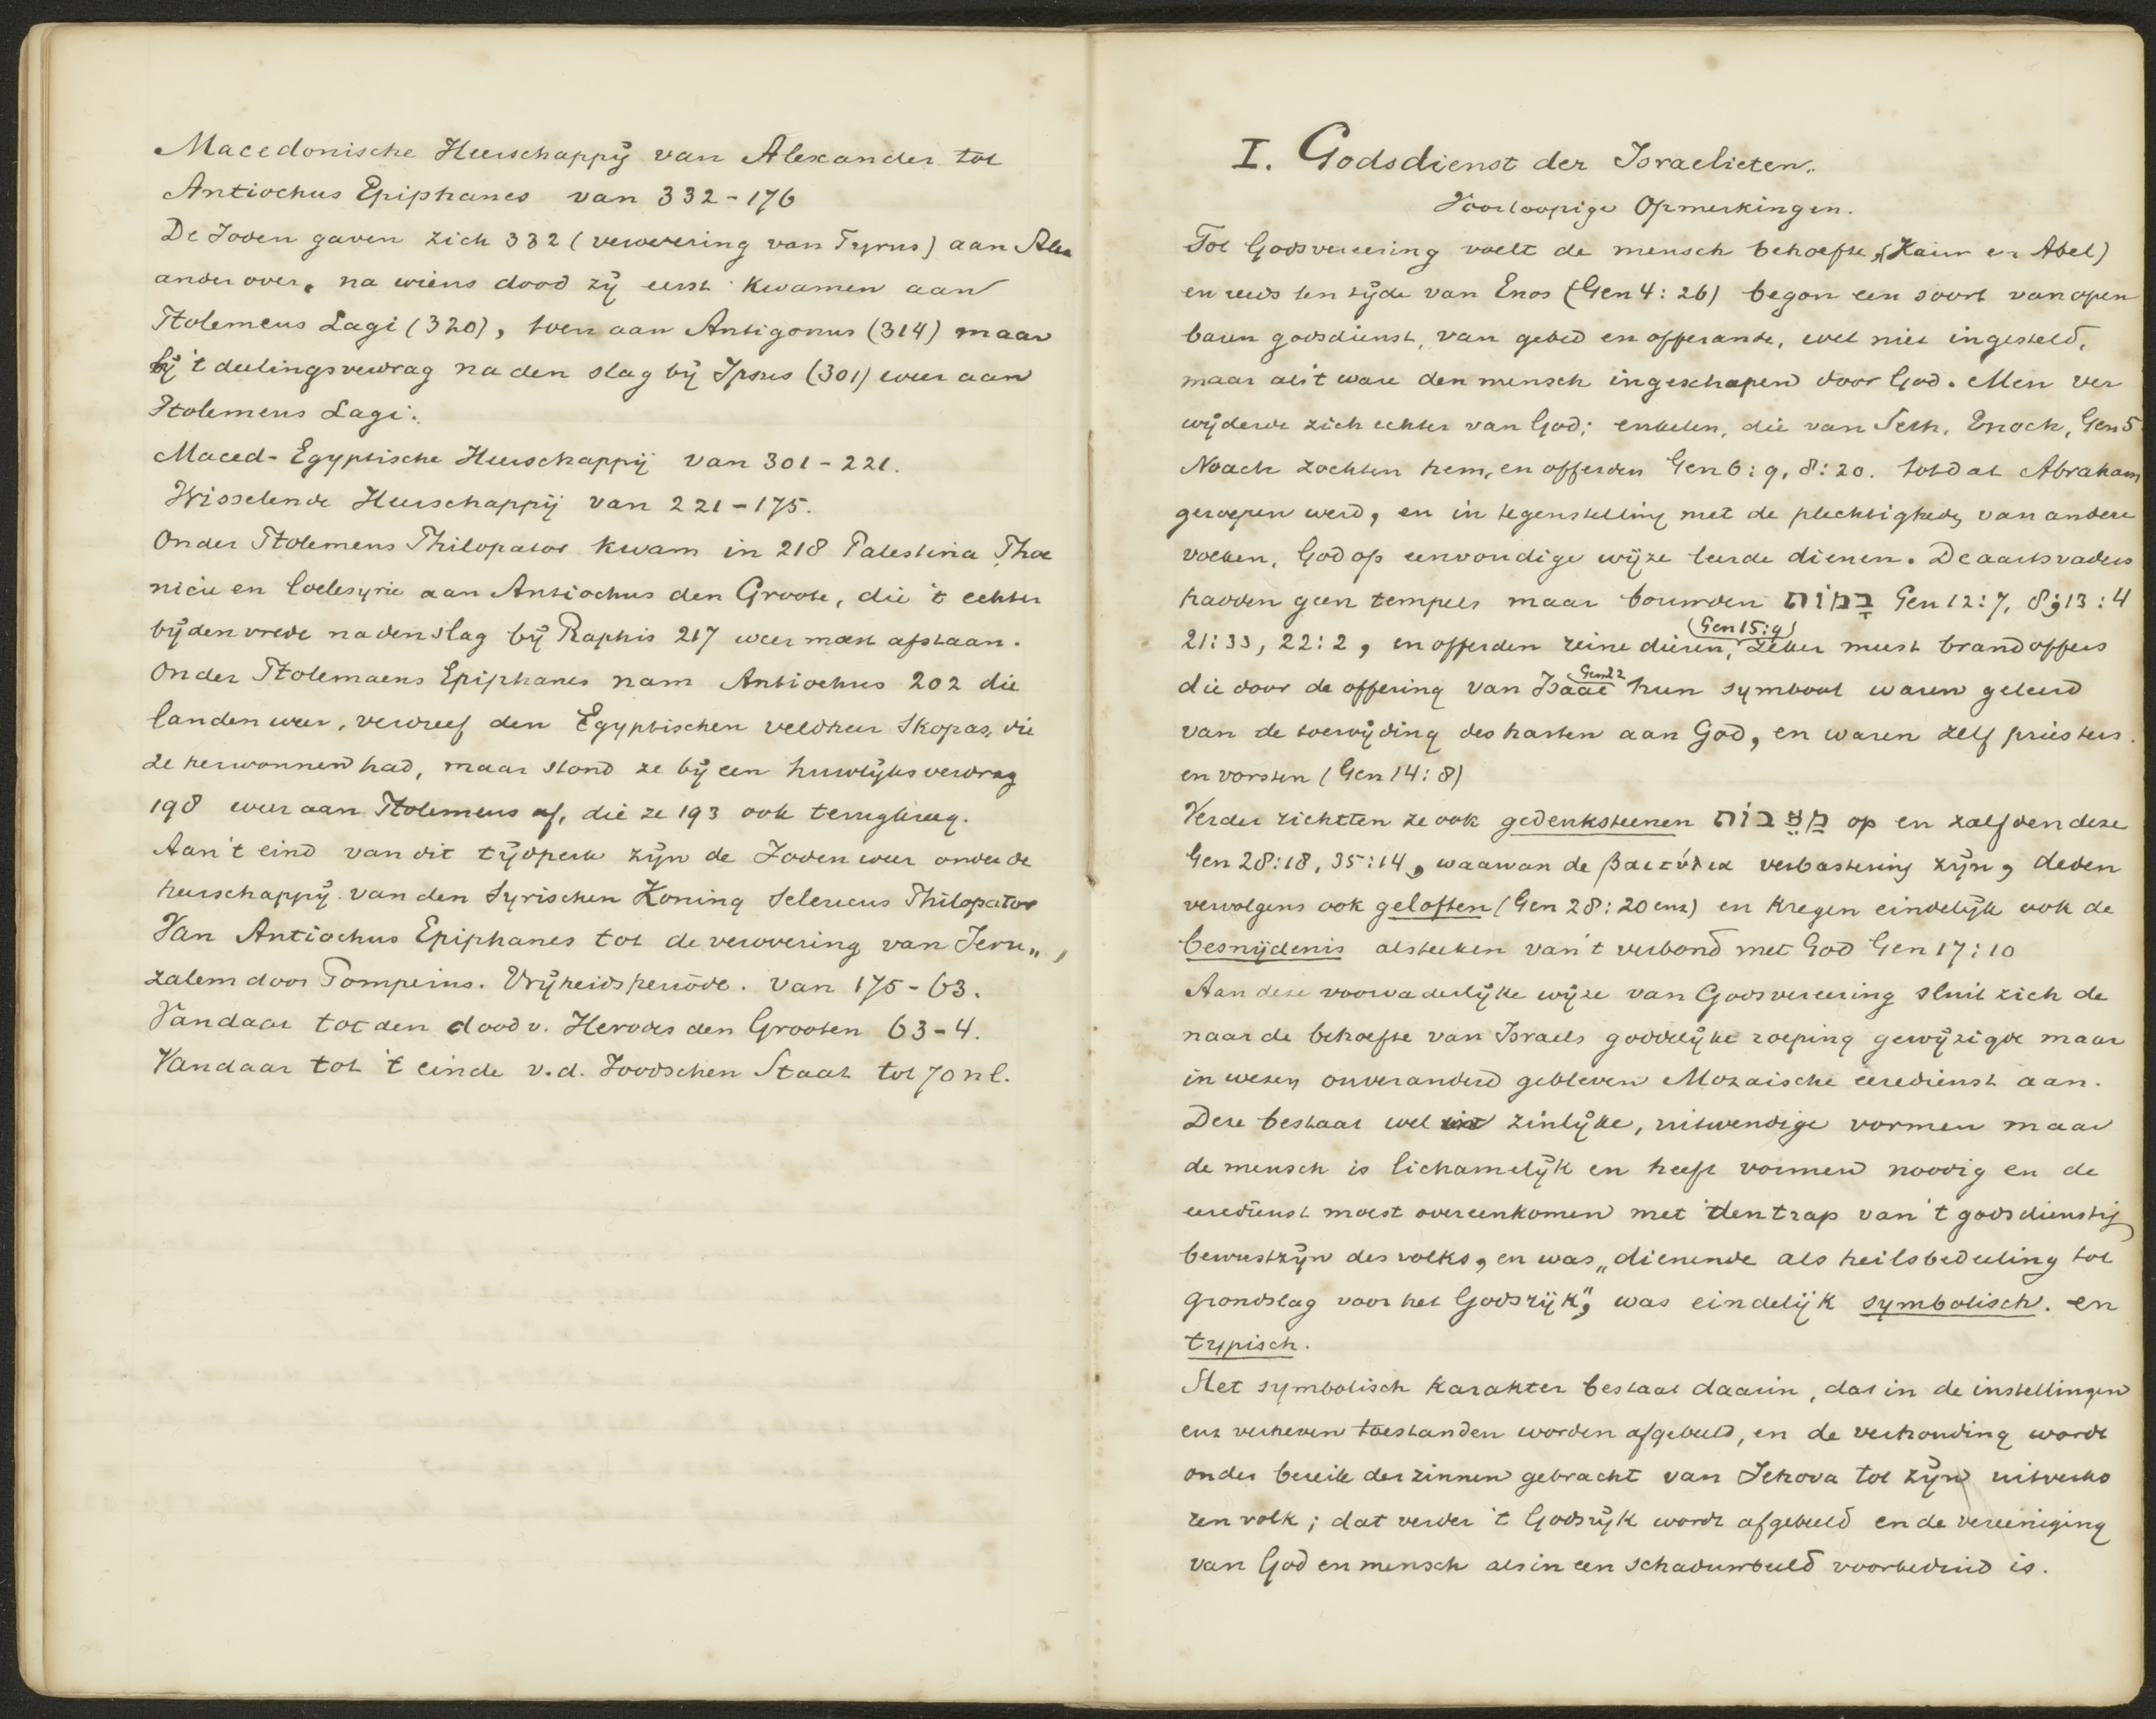 Macedonische Heerschappij van Alexander tot
Antiochus Epiphanes van 332-176
De Joden gaven zich 332 (verovering van Tyrus) aan Alex
ander over, na wiens dood zij eerst kwamen aan
Ptolemeus Lagi (320), toen aan Antigonus (314) maar
bij 't deelingsverdrag na den slag bij Ipsus (301) weer aan
Ptolemeus Lagi.
Maced-Egyptische Heerschappij van 301-221.
Wisselende Heerschappij van 221-175.
Onder Ptolemeus Philopator kwam in 218 Palestina Phoe
nicie en Coelesyrie aan Antiochus den Groote, die 't echter
bij den vrede na den slag bij Raphis 217 weer moest afstaan.
Onder Ptolemaeus Epiphanes nam Antiochus 202 die
landen weer, verdreef den Egyptischen veldheer Skopas, die
ze herwonnen had, maar stond ze bij een huwlijksverdrag
198 weer aan Ptolemeus af, die ze 193 ook terugkreeg.
Aan 't eind van dit tijdperk zijn de Joden weer onder de
heerschappij van den Syrischen Koning Seleucus Philopator
Van Antiochus Epiphanes tot de verovering van Jeru„
zalem door Pompeius. Vrijheidsperiode. van 175-63.
Vandaar tot den dood v. Herodes den Grooten 63-4.
Vandaar tot 't einde v.d. Joodschen Staat tot 70 n C.
I. Godsdienst der Israelieten.
Voorloopige Opmerkingen.
Tot Godsvereering voelt de mensch behoefte, (Kain en Abel)
en reeds ten tijde van Enos (Gen 4:26) begon een soort van open
baren godsdienst, van gebed en offerande, wel niet ingesteld,
maar als 't ware den mensch ingeschapen door God. Men ver
wijderde zich echter van God; enkelen, die van Seth, Enoch, Gen 5
Noach zochten hem, en offerden Gen 6:9, 8:20. totdat Abraham
geroepen werd, en in tegenstelling met de plechtigheden van andere
volken, God op eenvoudige wijze leerde dienen. De aartsvaders
hadden geen tempels maar bouwden בָּמוֹת Gen 12:7, 8; 13:4
21:33, 22:2, en offerden reine dieren, (Gen 15:9) zeker meest brandoffers
die door de offering van Isaac Gen 22 hun symbool waren geleerd
van de toewijding des harten aan God, en waren zelf priesters
en vorsten (Gen 14:8)
Verder richtten ze ook gedenksteenen מַצֵּבוֹת op en zalfden deze
Gen 28:18, 35:14, waarvan de βαιτύλια verbastering zijn, deden
vervolgens ook geloften (Gen 28:20 enz) en kregen eindelijk ook de
besnijdenis als teeken van 't verbond met God Gen 17:10
Aan deze voorvaderlijke wijze van Godsvereering sluit zich de
naar de behoefte van Israels goddelijke roeping gewijzigde maar
in wezen onveranderd gebleven Mozaische eeredienst aan.
Deze bestaat wel uit zinlijke, uitwendige vormen maar
de mensch is lichamelijk en heeft vormen noodig en de
eeredienst moest overeenkomen met den trap van 't godsdienstig
bewustzijn des volks, en was „dienende als heilsbedeeling tot
grondslag voor het Godsrijk", was eindelijk symbolisch. en
typisch.
Het symbolisch karakter bestaat daarin, dat in de instellingen
enz verheven toestanden worden afgebeeld, en de verhouding wordt
onder bereik der zinnen gebracht van Jehova tot zijn uitverko
ren volk; dat verder 't Godsrijk wordt afgebeeld en de vereeniging
van God en mensch als in een schaduwbeeld voorbeduid is.